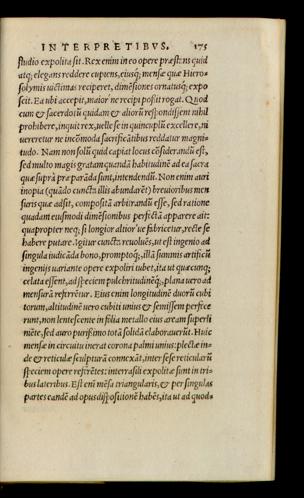 INTERPRETIBVS. 175
studio expolita sit. Rex enim in eo opere præstãs quid
atq; elegans reddere cupiens, eiusq; mensæ quæ Hiero-
solymis uictimas reciperet, dimẽsiones ornatusq; expo
scit. Ea ubi accepit, maior ne recipi possit rogat. Quod
cum & sacerdotũ quidam & aliorũ respondissent nihil
prohibere, inquit rex, uelle se in quincuplũ excellere, ni
uereretur ne incõmoda sacrificãtibus reddatur magni-
tudo. Nam non solũ quid capiat locus cõsiderandũ est,
sed multo magis gratam quandã habitudinẽ ad ea sacra
quæ suprà præparãda sunt, intendendũ. Non enim auri
inopia (quãdo cuncta illis abundarẽt) breuioribus men
suris quæ adsit, composità arbitrandũ esse, sed ratione
quadam eiusmodi dimẽsionibus perfectã apparere ait:
quapropter neq; si longior altior'ue fabricetur, recte se
habere putare. Igitur cuncta reuoluẽs, ut est ingenio ad
singula iudicãda bono, promptoq;, illã summis artificũ
ingenijs uariante opere expoliri iubet, ita ut quæcunq;
celata essent, ad speciem pulchritudinẽq;, plana uero ad
mensurã referrẽtur. Eius enim longitudinẽ duorũ cubi
torum, altitudinẽ uero cubiti unius & semissem perfece
runt, non lentescente in filia metallo eius aream superli
niẽte, sed auro purissimo totã solidã elaborauerũt. Huic
mensæ in circuitu inerat corona palmi unius: plectæ in-
de & reticulæ sculpturã connexãt, inter sese reticularũ
speciem opere referẽtes: interrasili expolitæ sunt in tri-
bus lateribus. Est enĩ mẽsa triangularis, & per singulas
partes eandẽ ad opus dispositionẽ habẽs, ita ut ad quod-